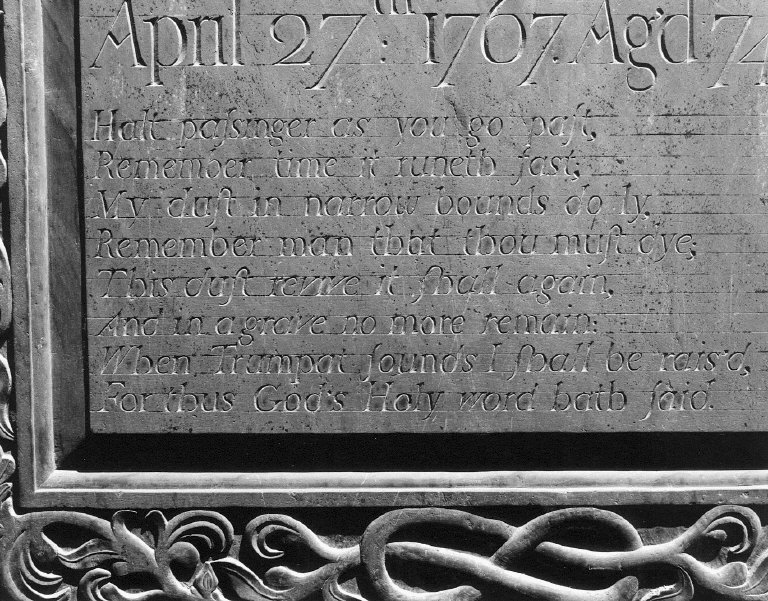 April 27:th 1767. Ag'd 74
Halt paſsinger as you go paſt,
Remember time it runeth faſt;
My duſt in narrow bounds do ly,
Remember man that thou muſt dye;
This duſt revive it ſhall again,
And in a grave no more remain:
When Trumpat ſounds I ſhall be rais'd,
For thus God's Holy word hath ſaid.